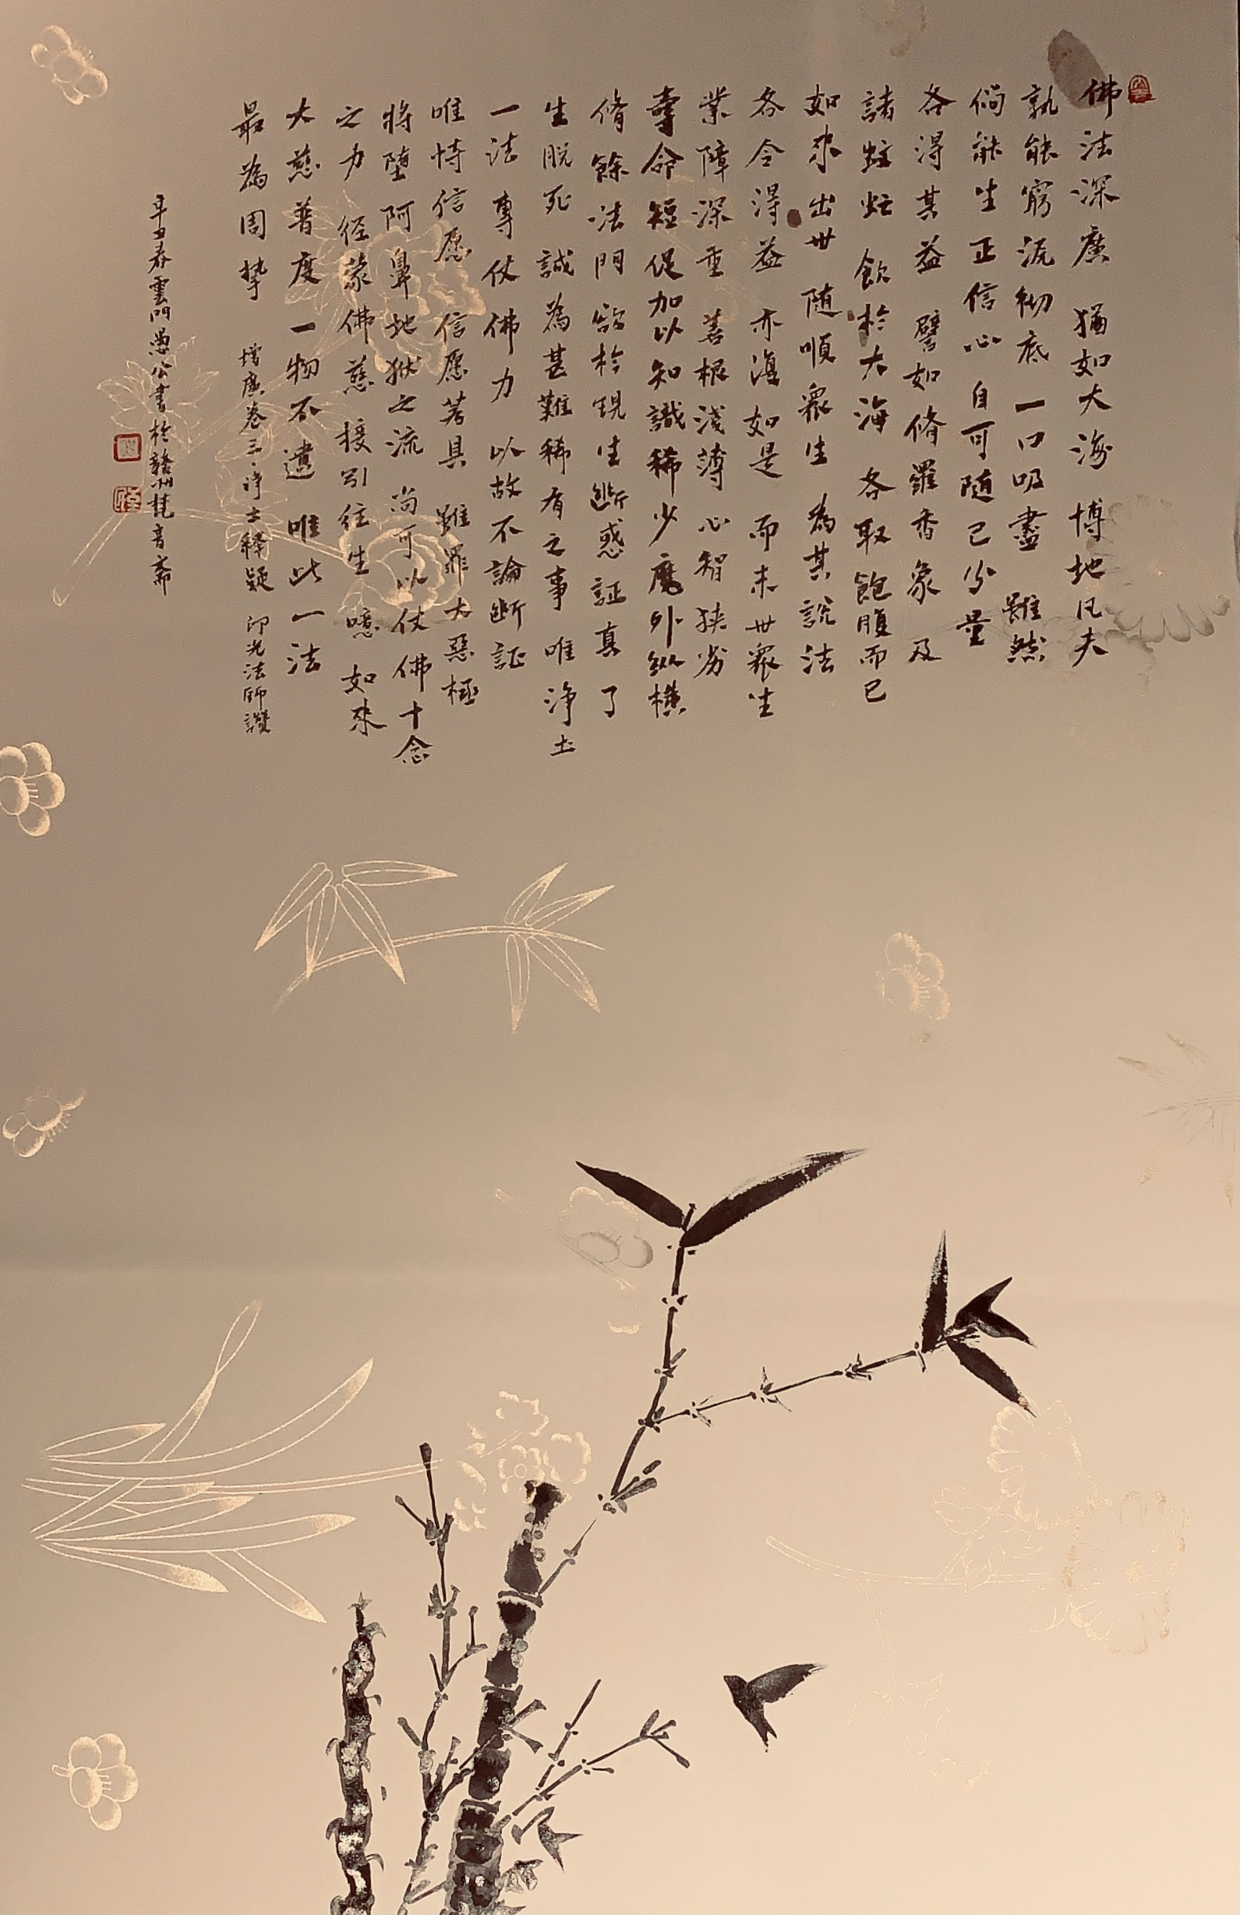 佛法深廣 猶如大海 博地凡夫
孰能窮沉徹底 一口吸盡 雖然
倘能生正信心 自可隨己分量
各得其益 譬如脩羅香象 及
諸蚊虻 飲於大海 各取飽腹而已
如來出世 随順眾生 為其說法
各令得益 亦復如是 而末世眾生
業障深重 善根淺薄 心智狹劣
壽命短促 加以知識稀少 魔外縱橫
脩餘法門 欲於現生斷惑証真 了
生脫死 誠為甚難稀有之事 唯浄土
一法 專仗佛力 以故不論斷証
唯恃信愿 信愿若具 雖罪大惡極
將墮阿鼻地獄之流 尚可以仗佛十念
之力 徑蒙佛慈 接引往生 噫 如來
大慈普度 一物不遺 唯此一法
最為周摯 增廣卷三·淨土釋疑 印光法師讚
辛丑春雲門愚公書於贛州梵音齋